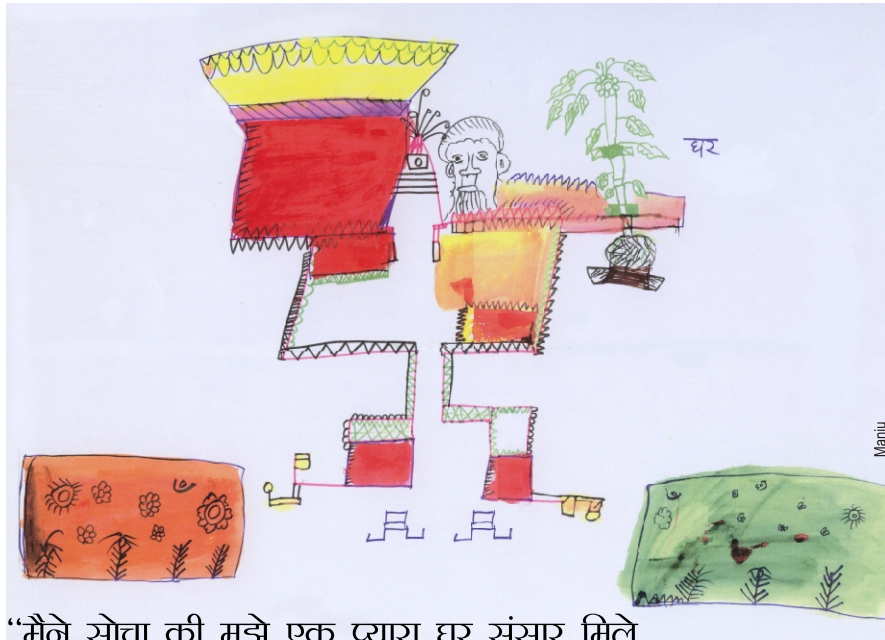 घर
Manju
“मैने सोचा की मुझे एक प्यारा घर संसार मिले